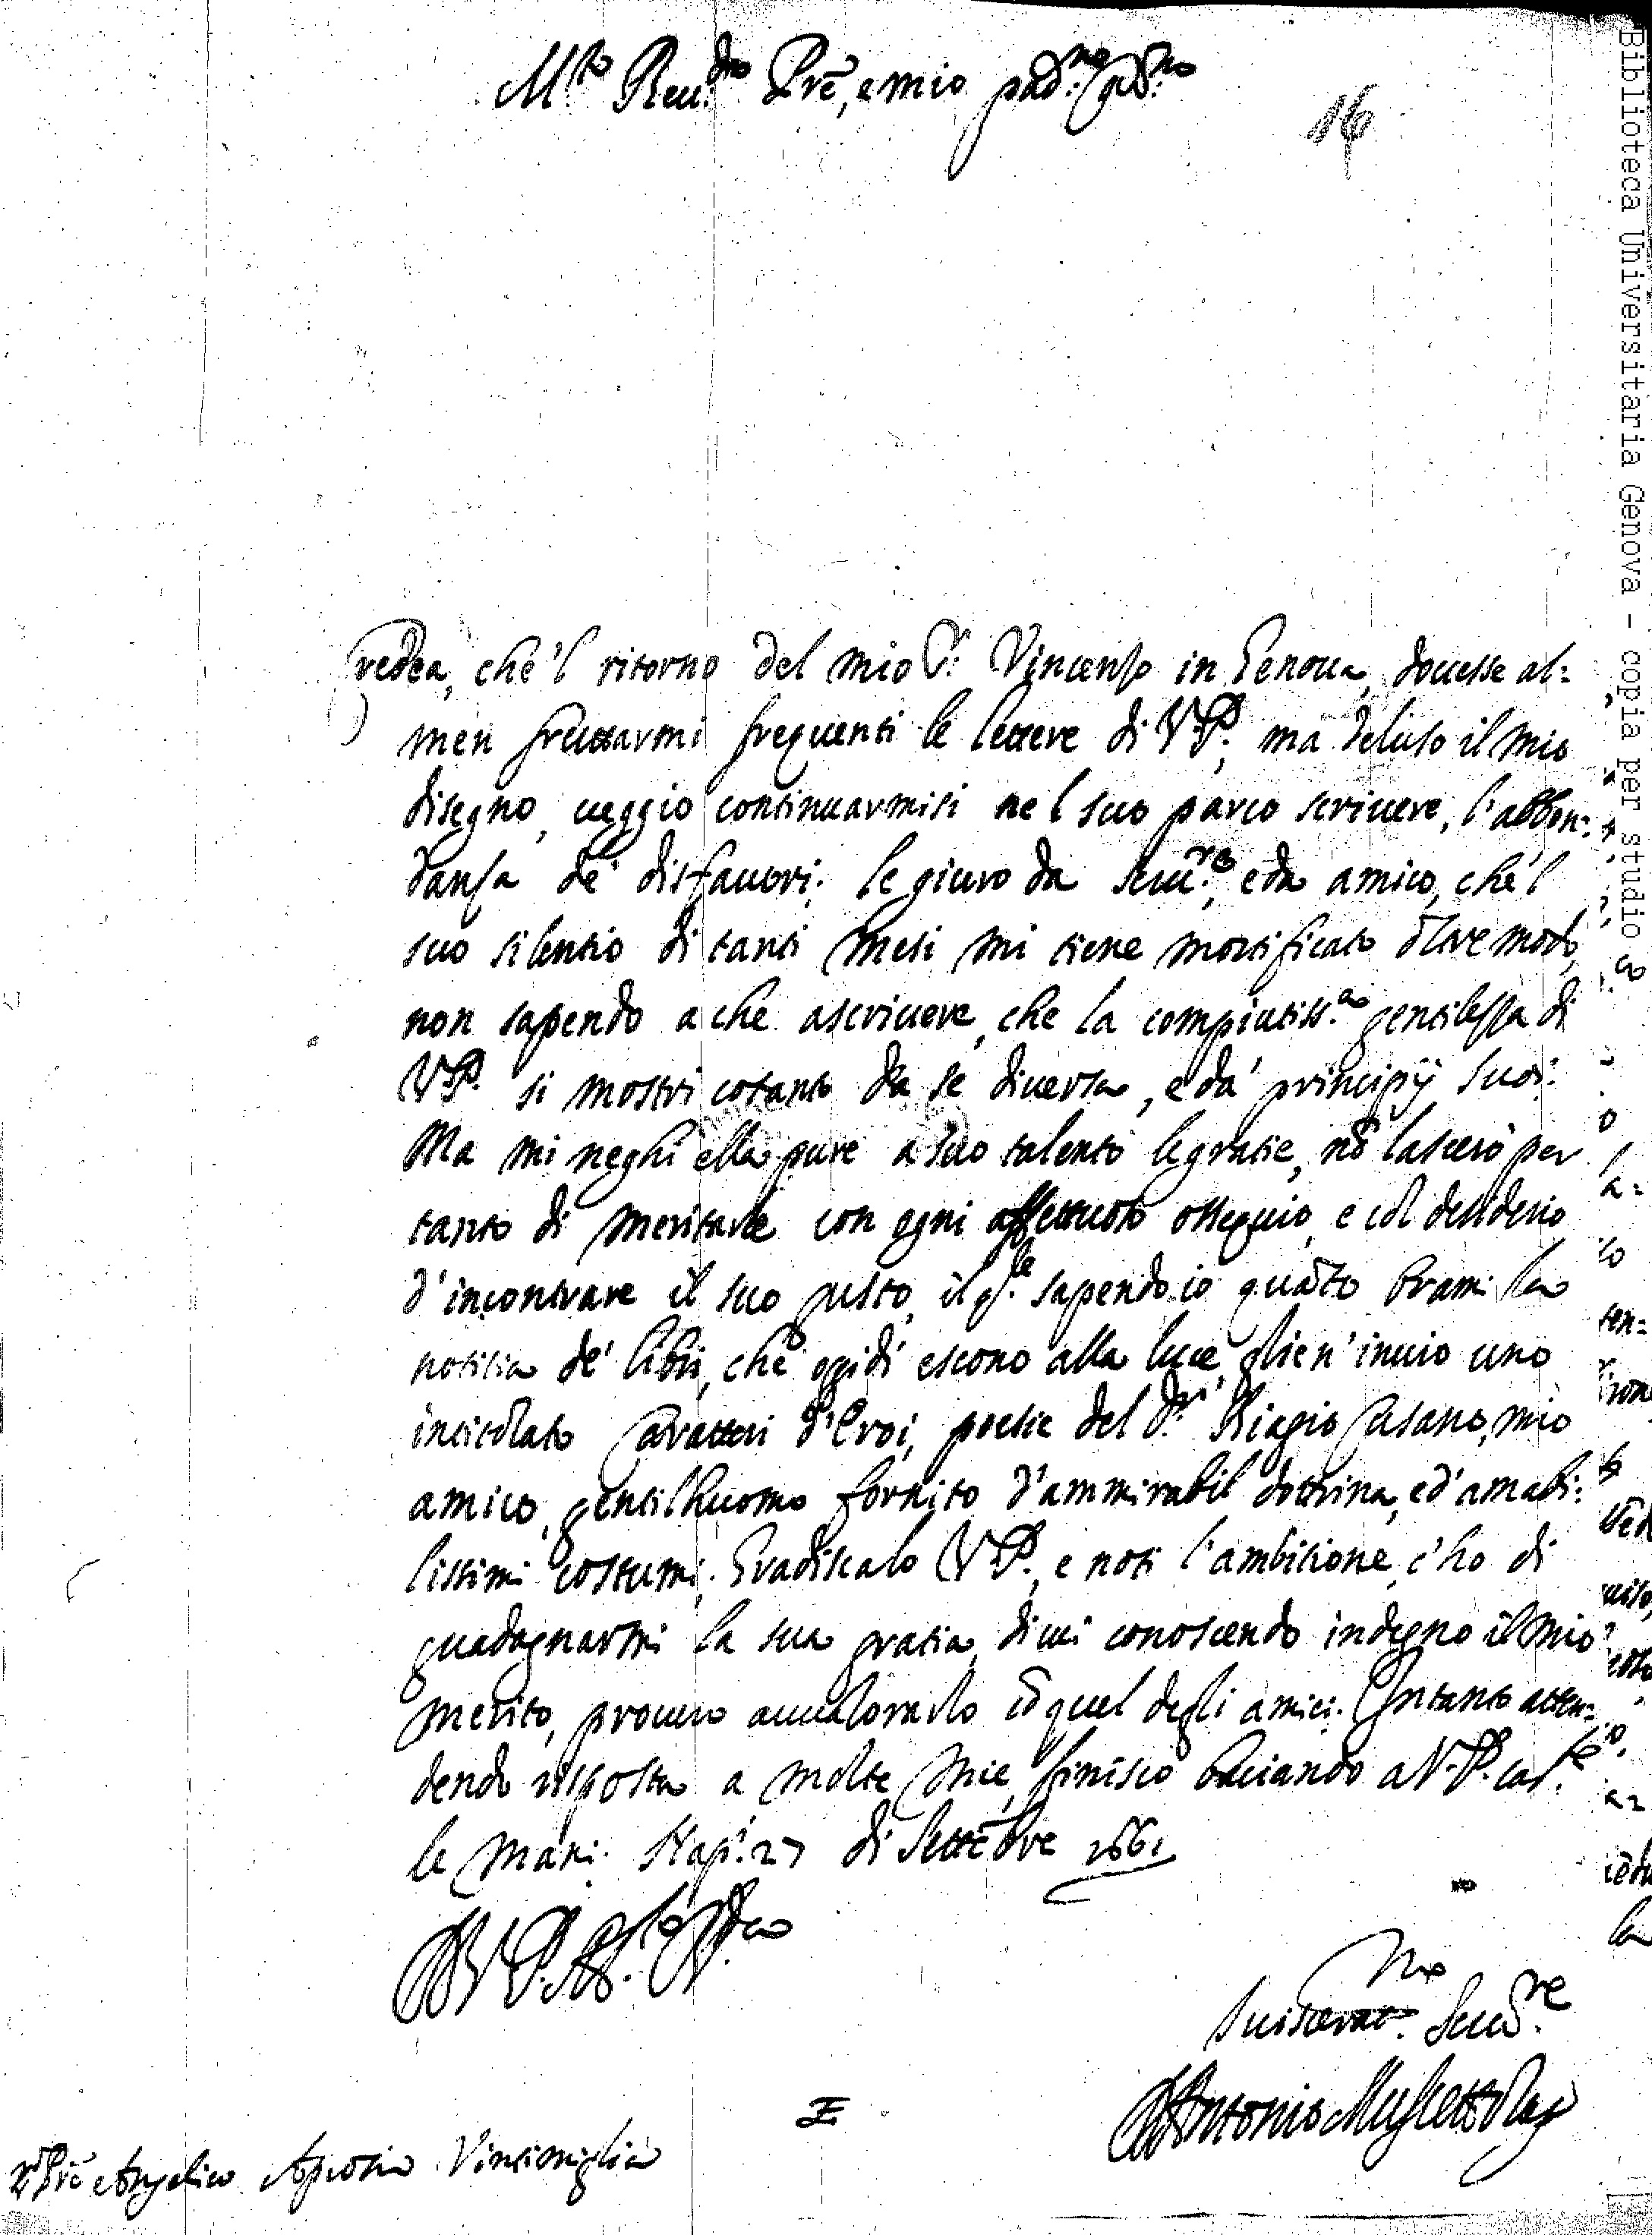 M.to Reu.do Prē, e mio pad.ne oss.mo
16
Credea, che'l ritorno del mio S.r Vincenzo in Genoua, douesse al=
men fruttarmi frequenti le lettere di V.P.; ma deluso il mio
disegno, ueggio continuarmisi nel suo parco scriuere, l'abbon=
danza de' disfauori. le giuro da seru.re, e da amico, che'l
suo silentio di tanti mesi mi tiene mortificato oltre modo,
non sapendo a che ascriuere, che la compiutiss.a gentilezza di
V.P. si mostri cotanto da se diuersa, e da' principij suoi.
Ma mi neghi ella pure a suo talento le gratie, nō lascerò per
tanto di meritarle con ogni affettuoso ossequio, e col desiderio
d'incontrare il suo gusto, il q.le sapendo io quāto brami la
notitia de' libri, che oggidì escono alla luce, glien'inuio uno
intitolato Caratteri d'Eroi, poesie del S.r Biagio Cusano, mio
amico, gentilhuomo fornito d'ammirabil dottrina, ed'amabi=
lissimi costumi. Gradiscalo V.P., e noti l'ambitione, c'ho di
guadagnarmi la sua gratia, di cui conoscendo indegno il mio
merito, procuro auualorarlo cō quel degli amici. Intanto atten=
dendo risposta a molte mie, finisco baciando a V.P. cō
le mani. Nap.i 27 di Settēbre 1661
Di V.P. M.to R.da
Suiscerat.mo Seru.re
Antonio Muscettola
P. Prē Angelico Aprosio Vintimiglia
Biblioteca Universitaria Genova - copia per studio